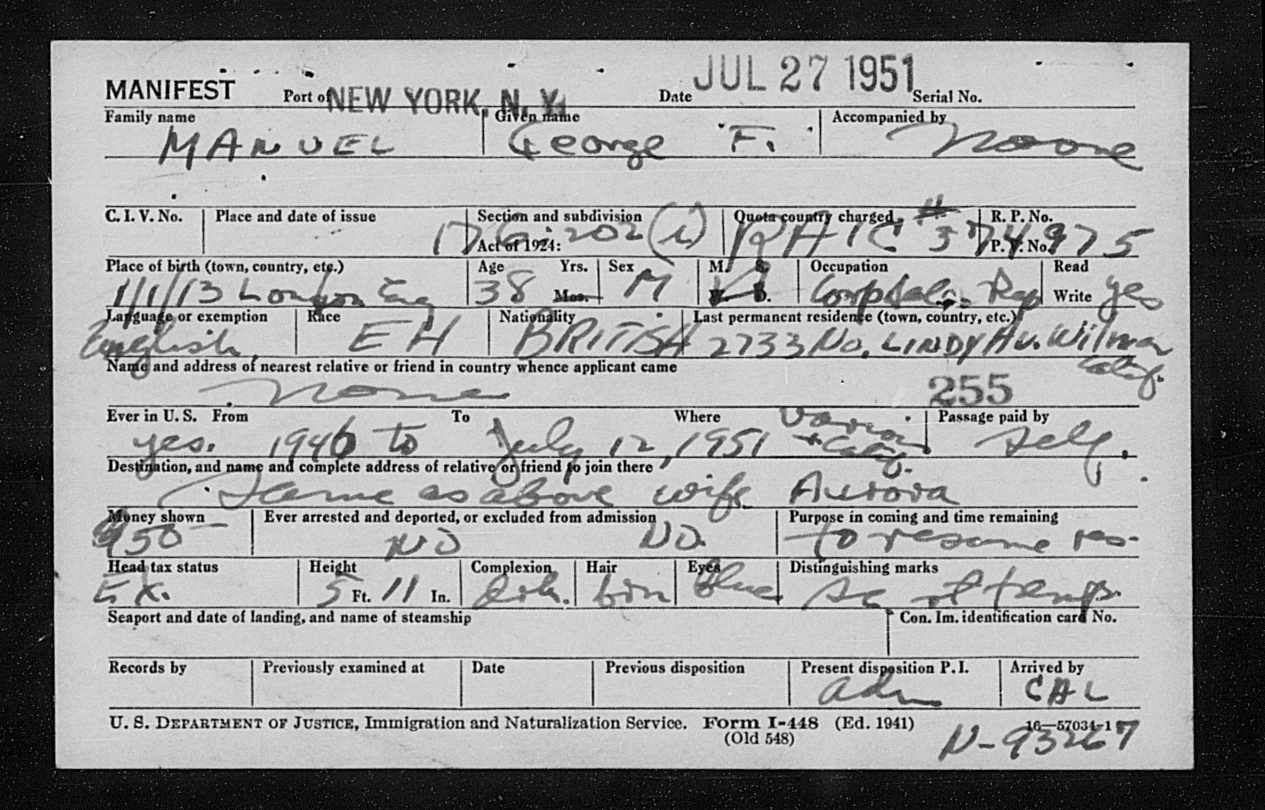 MANIFEST Port of NEW YORK, N. Y. Date JUL 27 1951 Serial No.
Family name Given name Accompanied by
MANUEL George F. Noone
C. I. V. No. Place and date of issue Section and subdivision Quota country charged R. P. No.
Act of 1924: 176.202(i) RAIC # 374975 P. V. No.
Place of birth (town, country, etc.) Age Yrs. Sex M. S. Occupation Read
1/1/13 London Eng 38 Mos. M W. D. Rep Write yes
Language or exemption Race Nationality Last permanent residence (town, country, etc.)
English EH BRITISH 2733 No. LINDY Av. Wilmar
Calif.
Name and address of nearest relative or friend in country whence applicant came
none 255
Ever in U. S. From To Where Passage paid by
yes. 1946 to July 12, 1951 + Calif. Self.
Destination, and name and complete address of relative or friend to join there
Same as above wife Aurora
Money shown Ever arrested and deported, or excluded from admission Purpose in coming and time remaining
950 NO NO. to resume res.
Head tax status Height Complexion Hair Eyes Distinguishing marks
Ex. 5 Ft. 11 In. drk. brn blue Sc
Seaport and date of landing, and name of steamship Con. Im. identification card No.
Records by Previously examined at Date Previous disposition Present disposition P. I. Arrived by
adm CAL
U. S. DEPARTMENT OF JUSTICE, Immigration and Naturalization Service. Form I-448 (Ed. 1941) 16—57034-1
(Old 548) N-93267